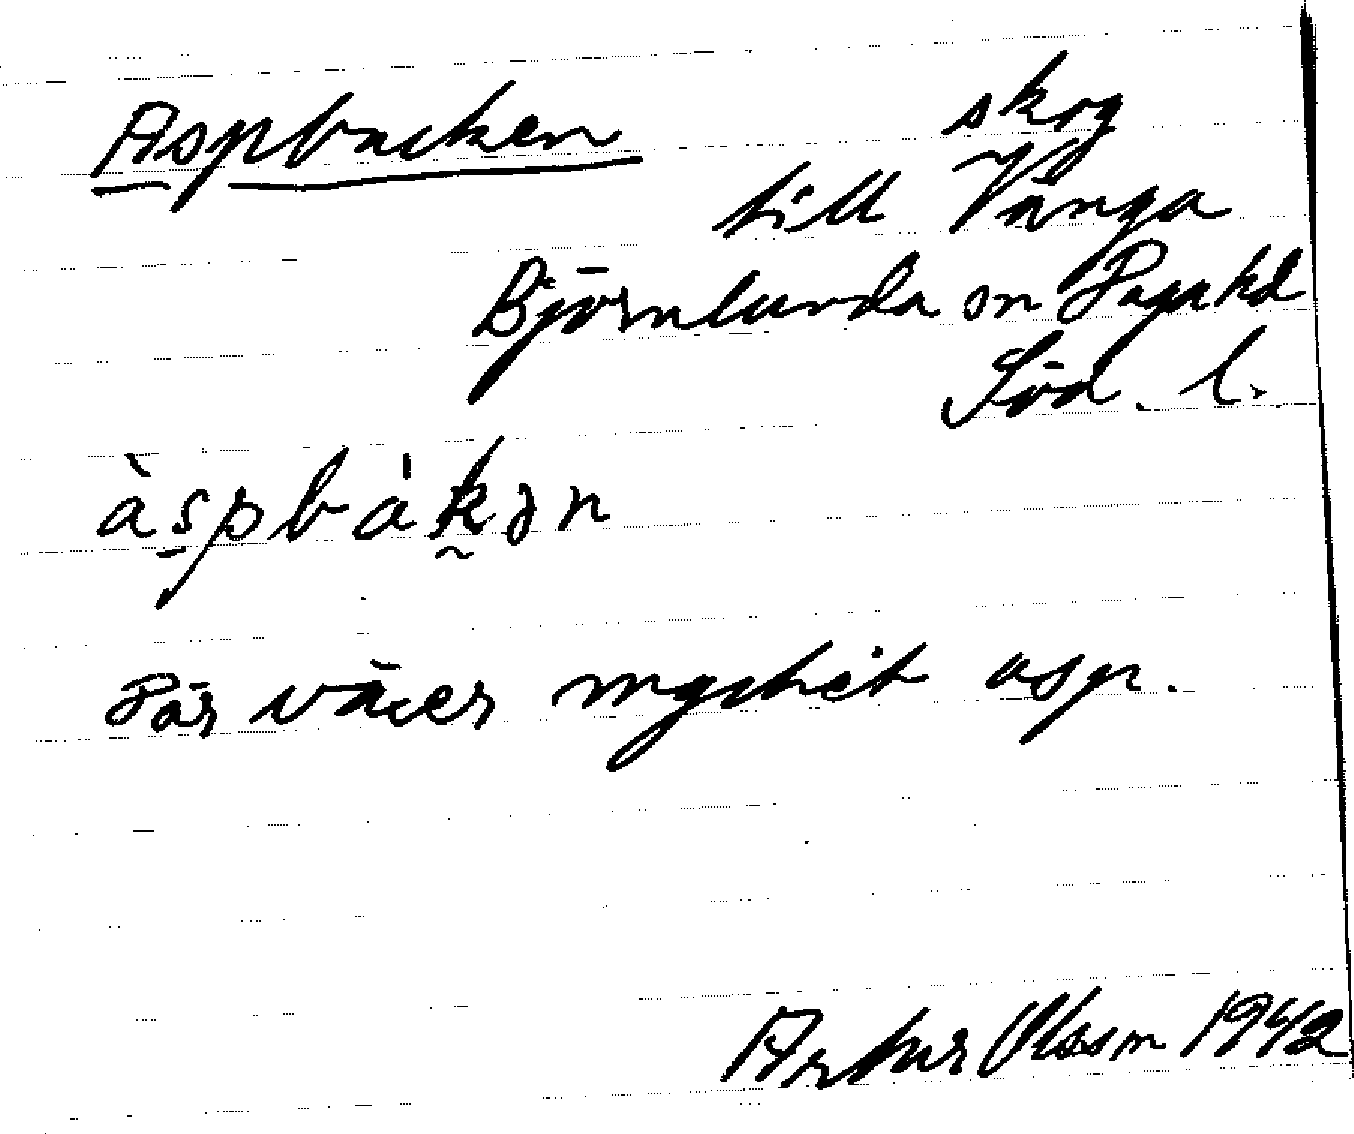 Aspbacken
skog
till Vänga
Björnlunda sn Daga hd
Söd. l.
àspbák̰ən
Där växer mycket asp.
Artur Olsson 1942